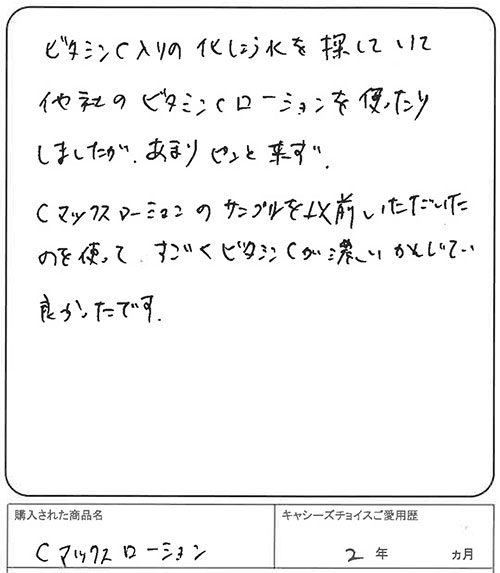 ビタミンC入りの化しょう水を探していて
他社のビタミンCローションを使ったり
しましたが、あまりピンと来ず、
Cマックスローションのサンプルを以前いただいた
のを使って、すごくビタミンCが濃いかんじでい
良かったです。
購入された商品名
キャシーズチョイスご愛用歴
Cマックスローション
2年 ヵ月